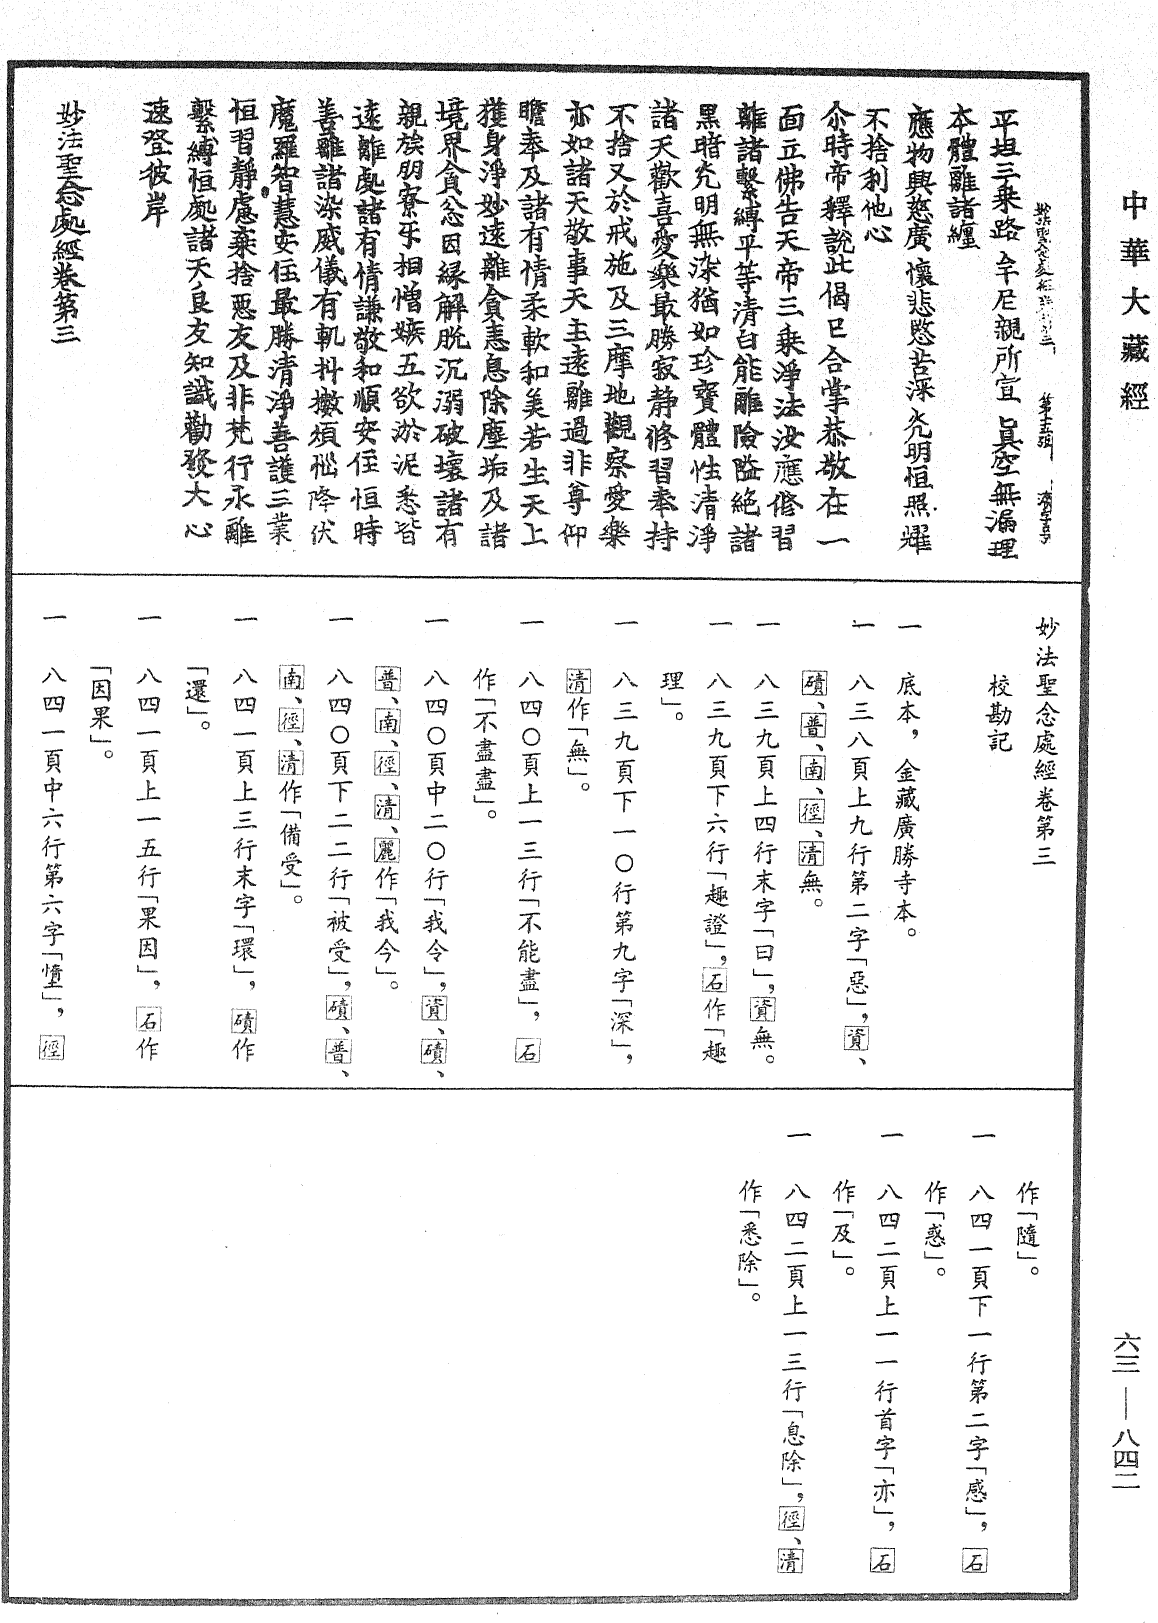 中華大藏經
平坦三乗路 牟尼親所宣 真空無漏理
本體離諸纏
應物興慈廣 懷悲愍苦深 光明恒照耀
不捨利他心
尒時帝釋說此偈已合掌恭敬在一
面立佛告天帝三乗淨法汝應修習
離諸繫縛平等清白能離險隘絶諸
黑暗光明無染猶如珍寶體性清淨
諸天歡喜愛樂最勝寂静修習奉持
不捨又於戒施及三摩地觀察愛樂
亦如諸天敬事天主遠離過非尊仰
瞻奉及諸有情柔軟和美若生天上
獲身淨妙遠離貪恚息除塵垢及諸
境界貪忿因縁解脱沉溺破壞諸有
親族朋寮互相憎嫉五欲淤泥悉皆
遠離處諸有情謙敬和順安住恒時
善離諸染威儀有軌抖擻煩惱降伏
魔羅智慧安住最勝清淨善護三業
恒習静慮棄捨惡友及非梵行永離
繫縛恒處諸天良友知識勸發大心
速登彼岸
妙法聖念處經卷第三
妙法聖念處經卷第三
校勘記
一 底本，金藏廣勝寺本。
一 八三八頁上九行第二字「惡」，資、
磧、普、南、徑、清無。
一 八三九頁上四行末字「曰」，資無。
一 八三九頁下六行「趣證」，石作「趣
理」。
一 八三九頁下一〇行第九字「深」，
清作「無」。
一 八四〇頁上一三行「不能盡」，石
作「不盡盡」。
一 八四〇頁中二〇行「我令」，資、磧、
普、南、徑、清、麗作「我今」。
一 八四〇頁下二二行「被受」，磧、普、
南、徑、清作「備受」。
一 八四一頁上三行末字「環」，磧作
「還」。
一 八四一頁上一五行「果因」，石作
「因果」。
一 八四一頁中六行第六字「墮」，徑
作「隨」。
一 八四一頁下一行第二字「感」，石
作「惑」。
一 八四二頁上一一行首字「亦」，石
作「及」。
一 八四二頁上一三行「息除」，徑、清
作「悉除」。
六三—八四二